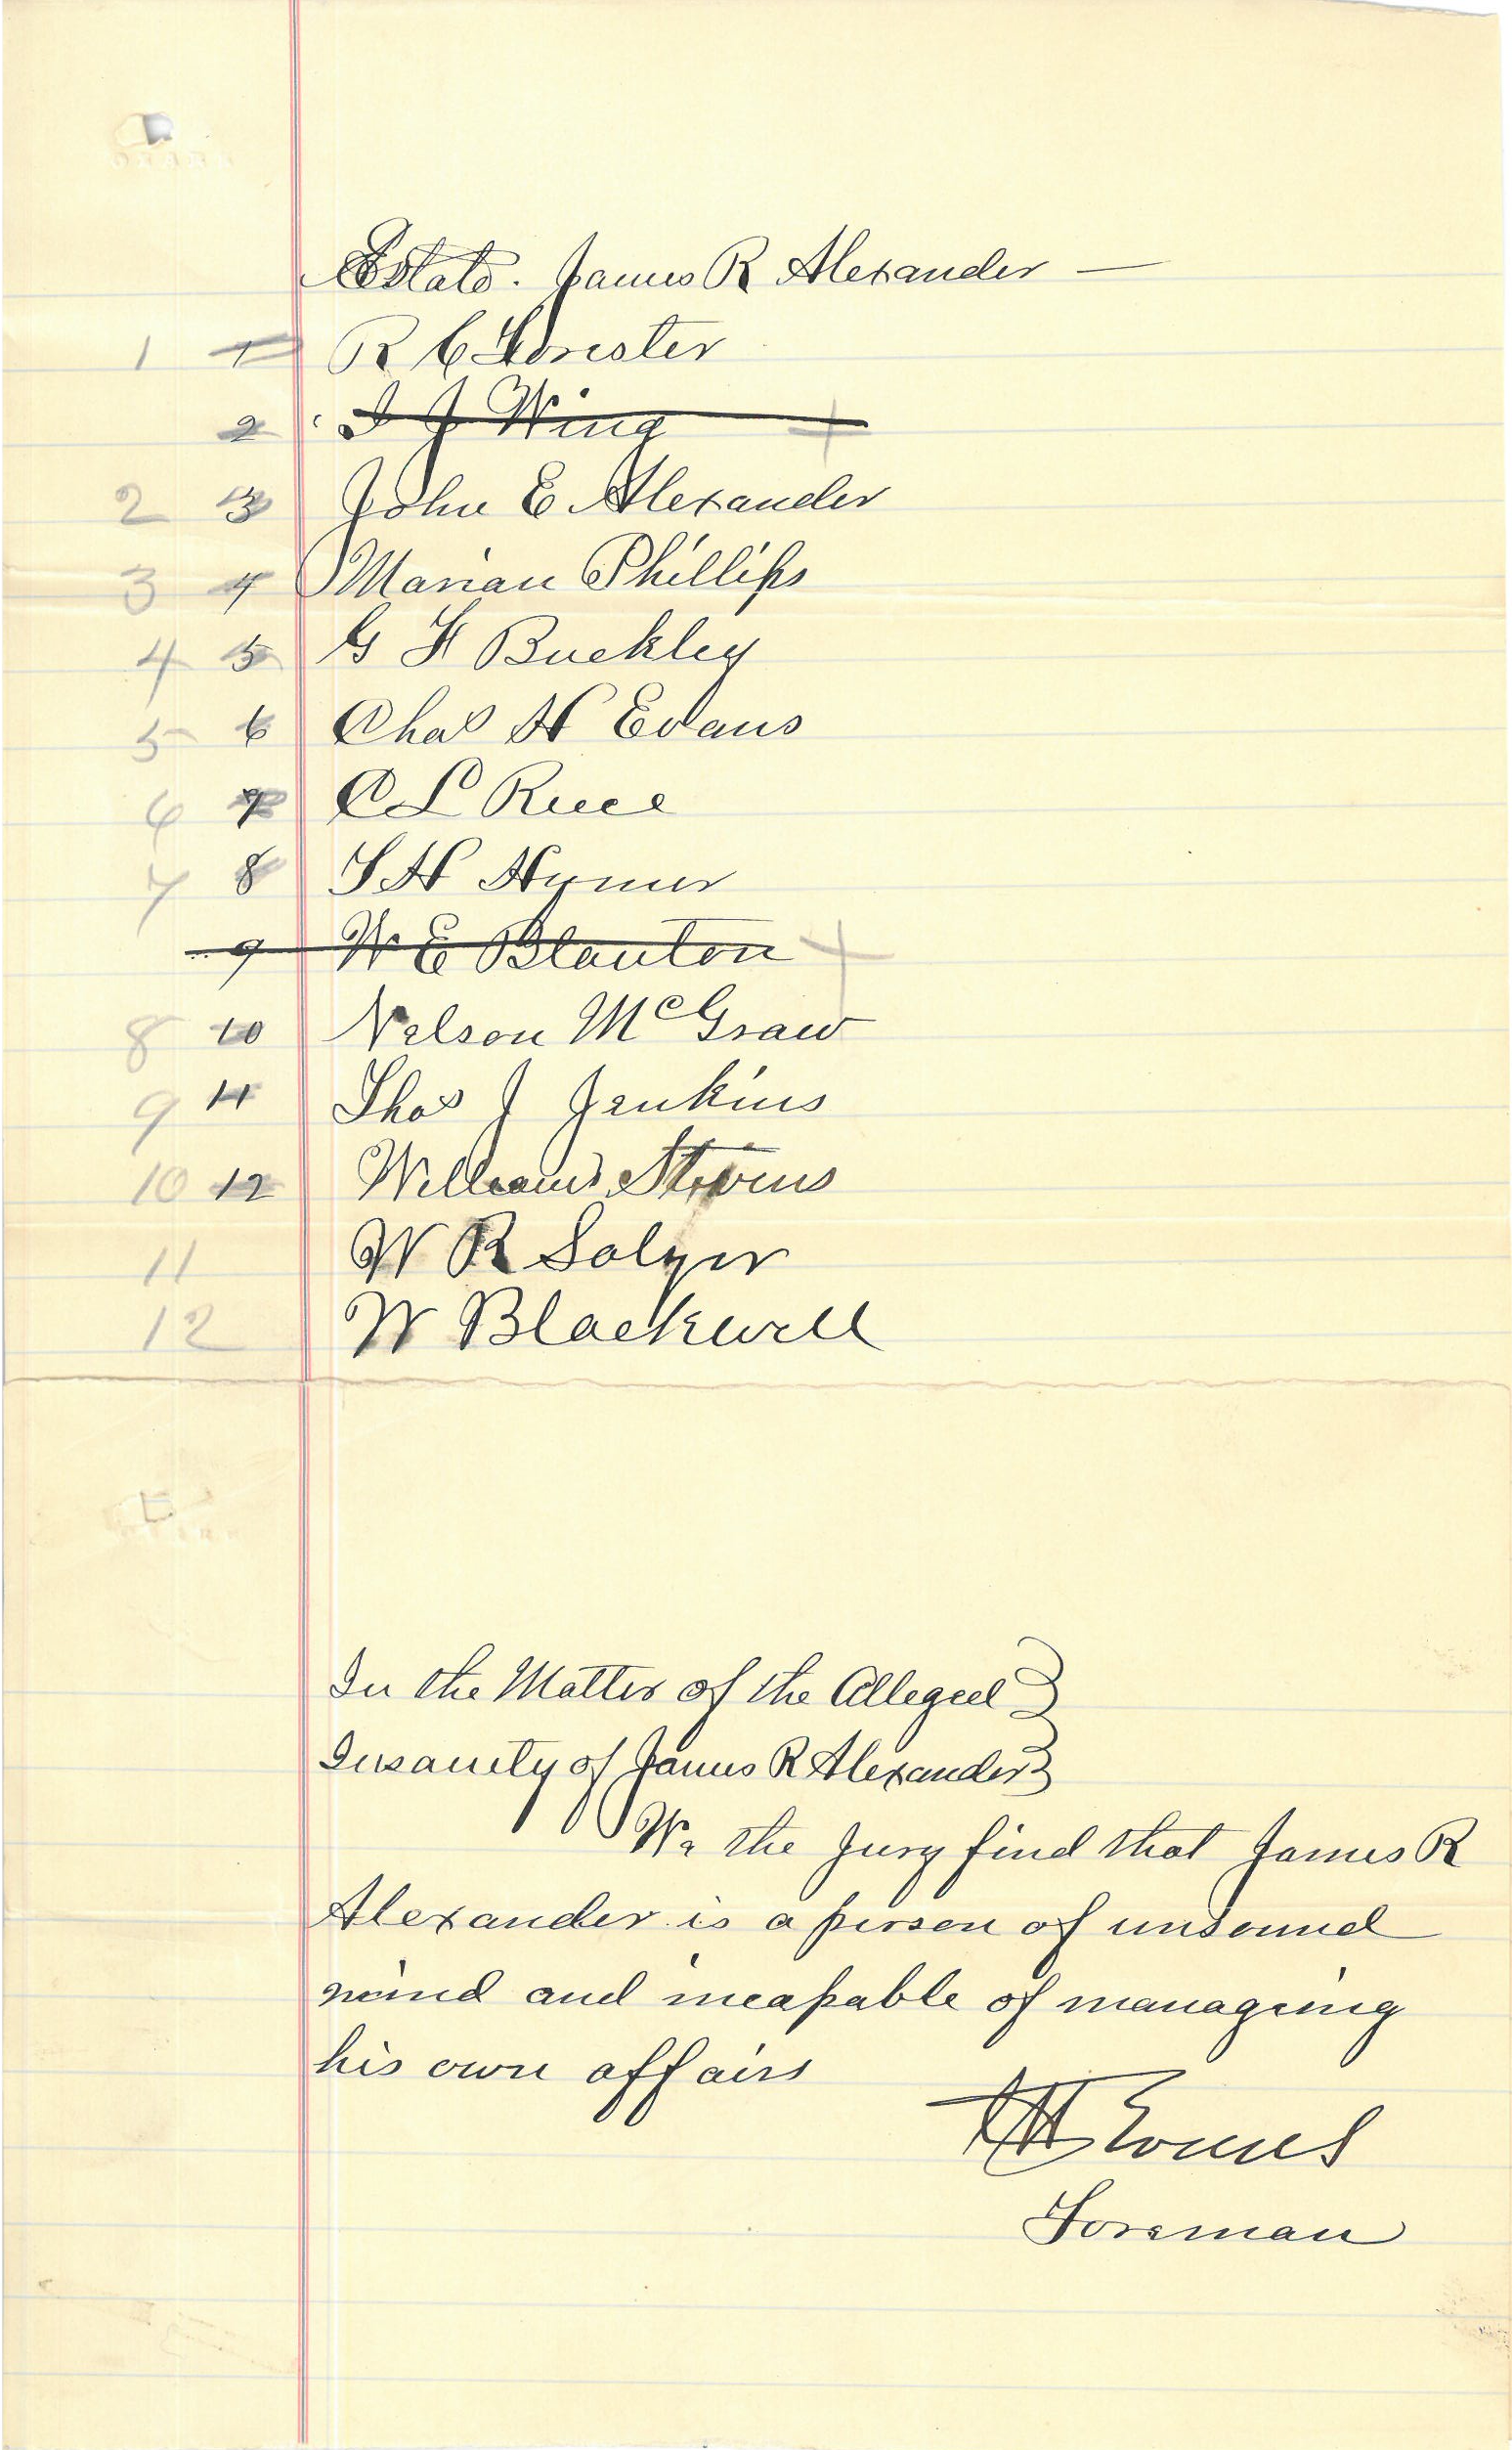 Estate. James R Alexander —
1 1 R C
2 I J Wing
2 3 John E Alexander
3 4 Marian Phillips
4 5 G F Buckley
5 6 Chas H Evans
6 7 C L Ruce
7 8 S H Hymer
9 W E Blanton
8 10 Nelson McGraw
9 11 Thos J Jenkins
10 12 William Stevens
11 W R Solyer
12 W Blackwell
In the Matter of the Alleged
Insanity of James R Alexander
We the Jury find that James R
Alexander is a person of unsound
mind and incapable of managing
his own affairs
C H Evans
Foreman